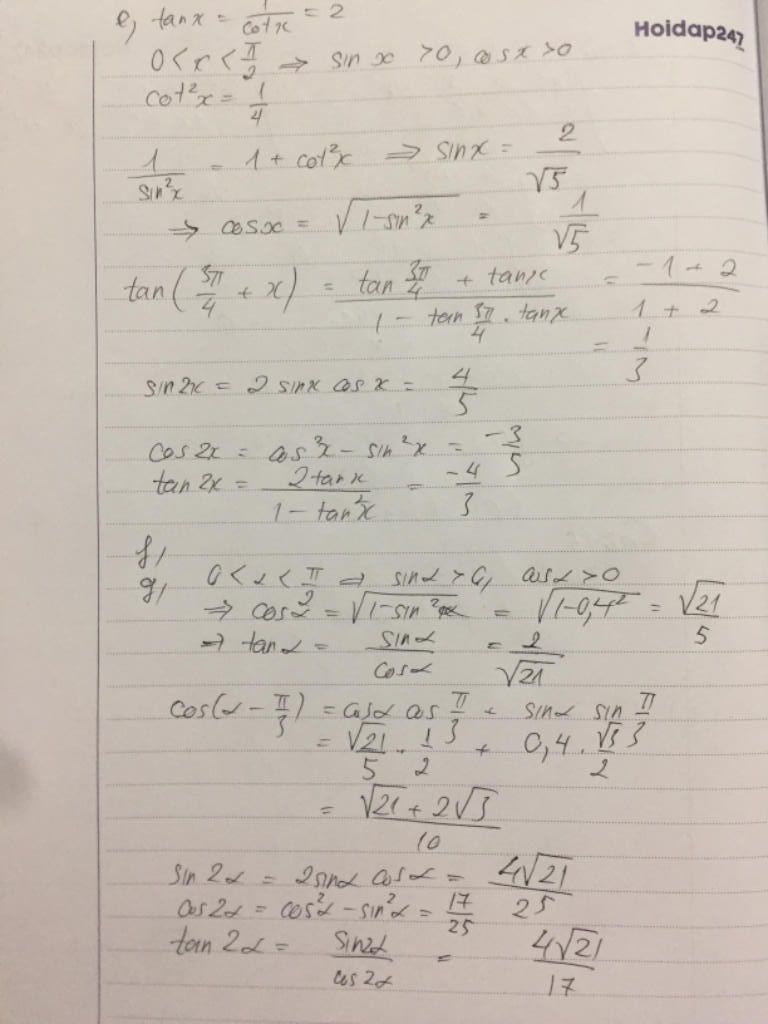 e, tan x = 1/cot x = 2
Hoidap247
0 < x < π/2 ⇒ sin x > 0, cos x > 0
cot²x = 1/4
1/sin²x = 1 + cot²x ⇒ sin x = 2/√5
⇒ cos x = √(1 - sin²x) = 1/√5
tan(3π/4 + x) = (tan 3π/4 + tan x)/(1 - tan 3π/4 . tan x) = (-1 + 2)/(1 + 2)
= 1/3
sin 2x = 2 sin x cos x = 4/5
cos 2x = cos²x - sin²x = -3/5
tan 2x = 2 tan x/(1 - tan²x) = -4/3
f,
g, 0 < α < π/2 ⇒ sin α > 0, cos α > 0
⇒ cos α = √(1 - sin²α) = √(1 - 0,4²) = √21/5
⇒ tan α = sin α/cos α = 2/√21
cos(α - π/3) = cos α cos π/3 + sin α sin π/3
= √21/5 . 1/2 + 0,4 . √3/2
= (√21 + 2√3)/10
sin 2α = 2 sin α cos α = 4√21/25
cos 2α = cos²α - sin²α = 17/25
tan 2α = sin 2α/cos 2α = 4√21/17